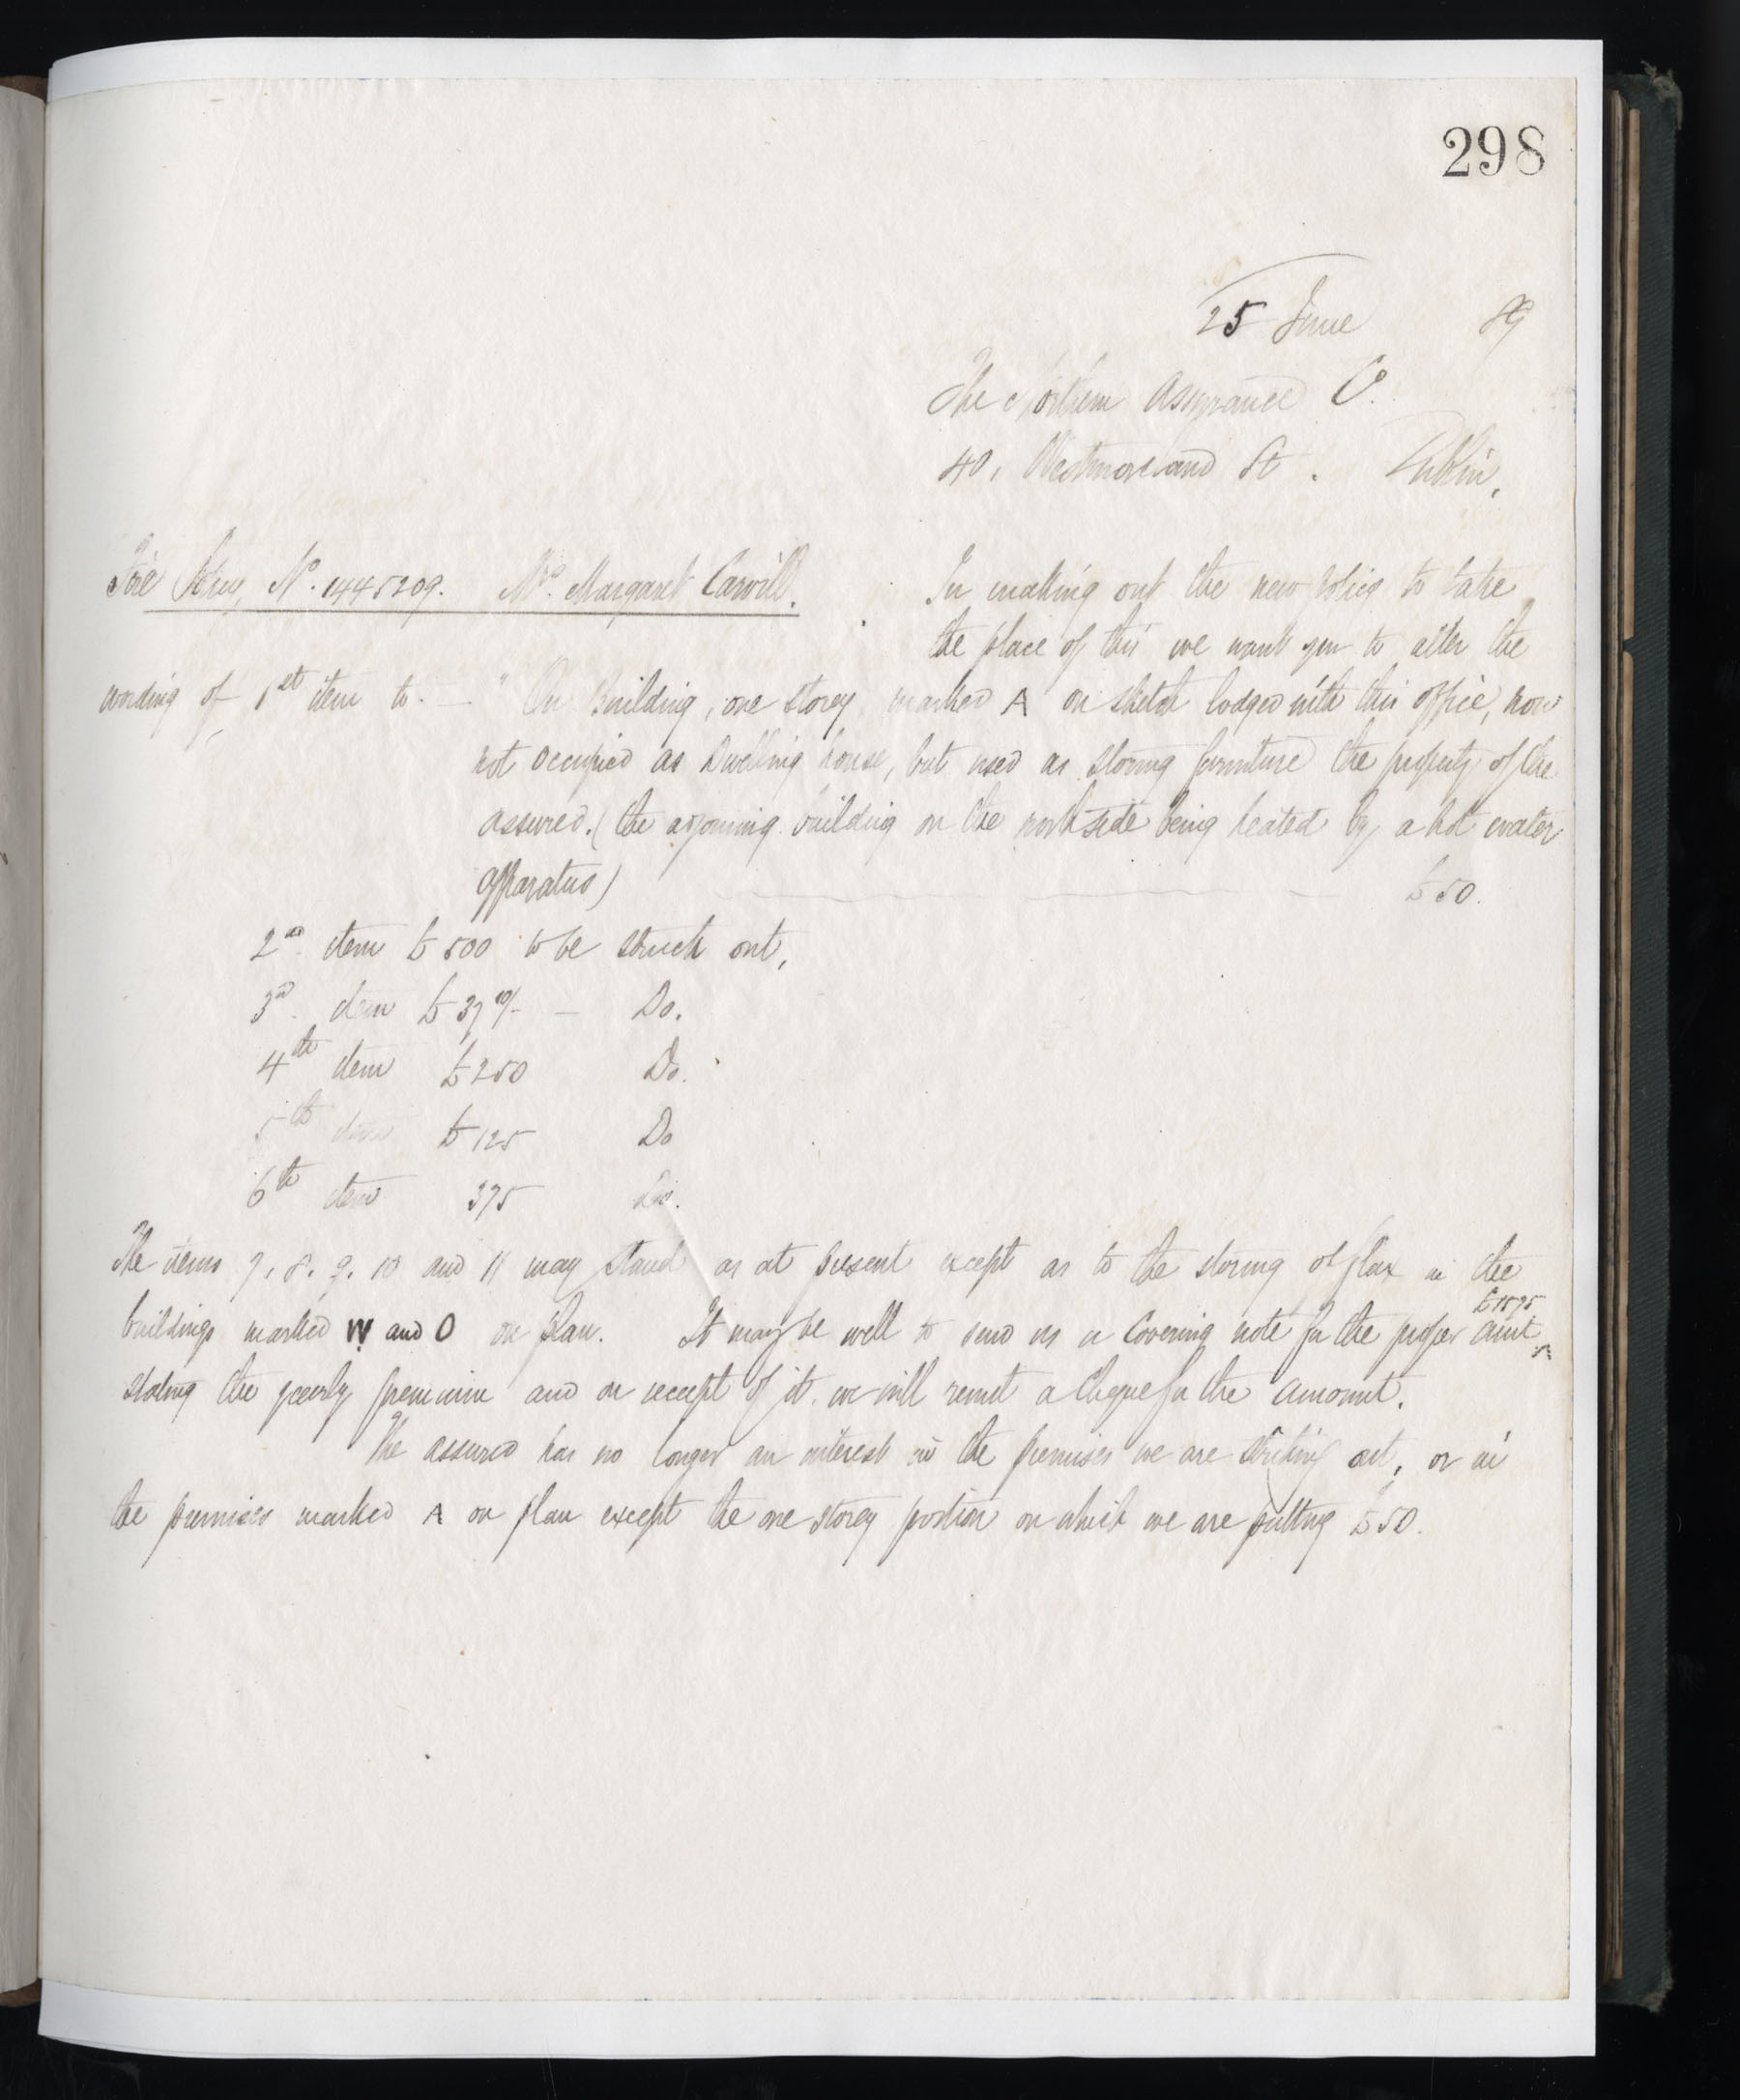 298
25 June 89
The Northern Assurance Co.
40, Westmoreland St. Dublin,
Fire Policy No. 1445209. Mrs. Margaret Carvill. In making out the new Policy to take
the place of this we want you to alter the
wording of 1st item to. — "On Building, one storey marked A on sketch lodged with this office, now
not occupied as Dwelling house, but used as storing furniture the property of the
assured. (the adjoining building on the north side being heated by a hot water
apparatus) £50.
2nd item £500 to be struck out,
3rd item £37 10/- — Do.
4th item £250 Do.
5th item £125 Do
6th item 375 Do.
The items 7, 8. 9. 10 and 11 may stand as at present except as to the storing of flax in the
buildings marked W and O on plan. It may be well to send us a Covering note for the proper amt £1575
stating the yearly premium and on receipt of it we will remit a cheque for the amount.
The assured has no longer an interest in the premises we are striking out, or in
the premises marked A on plan except the one storey portion on which we are putting £50.